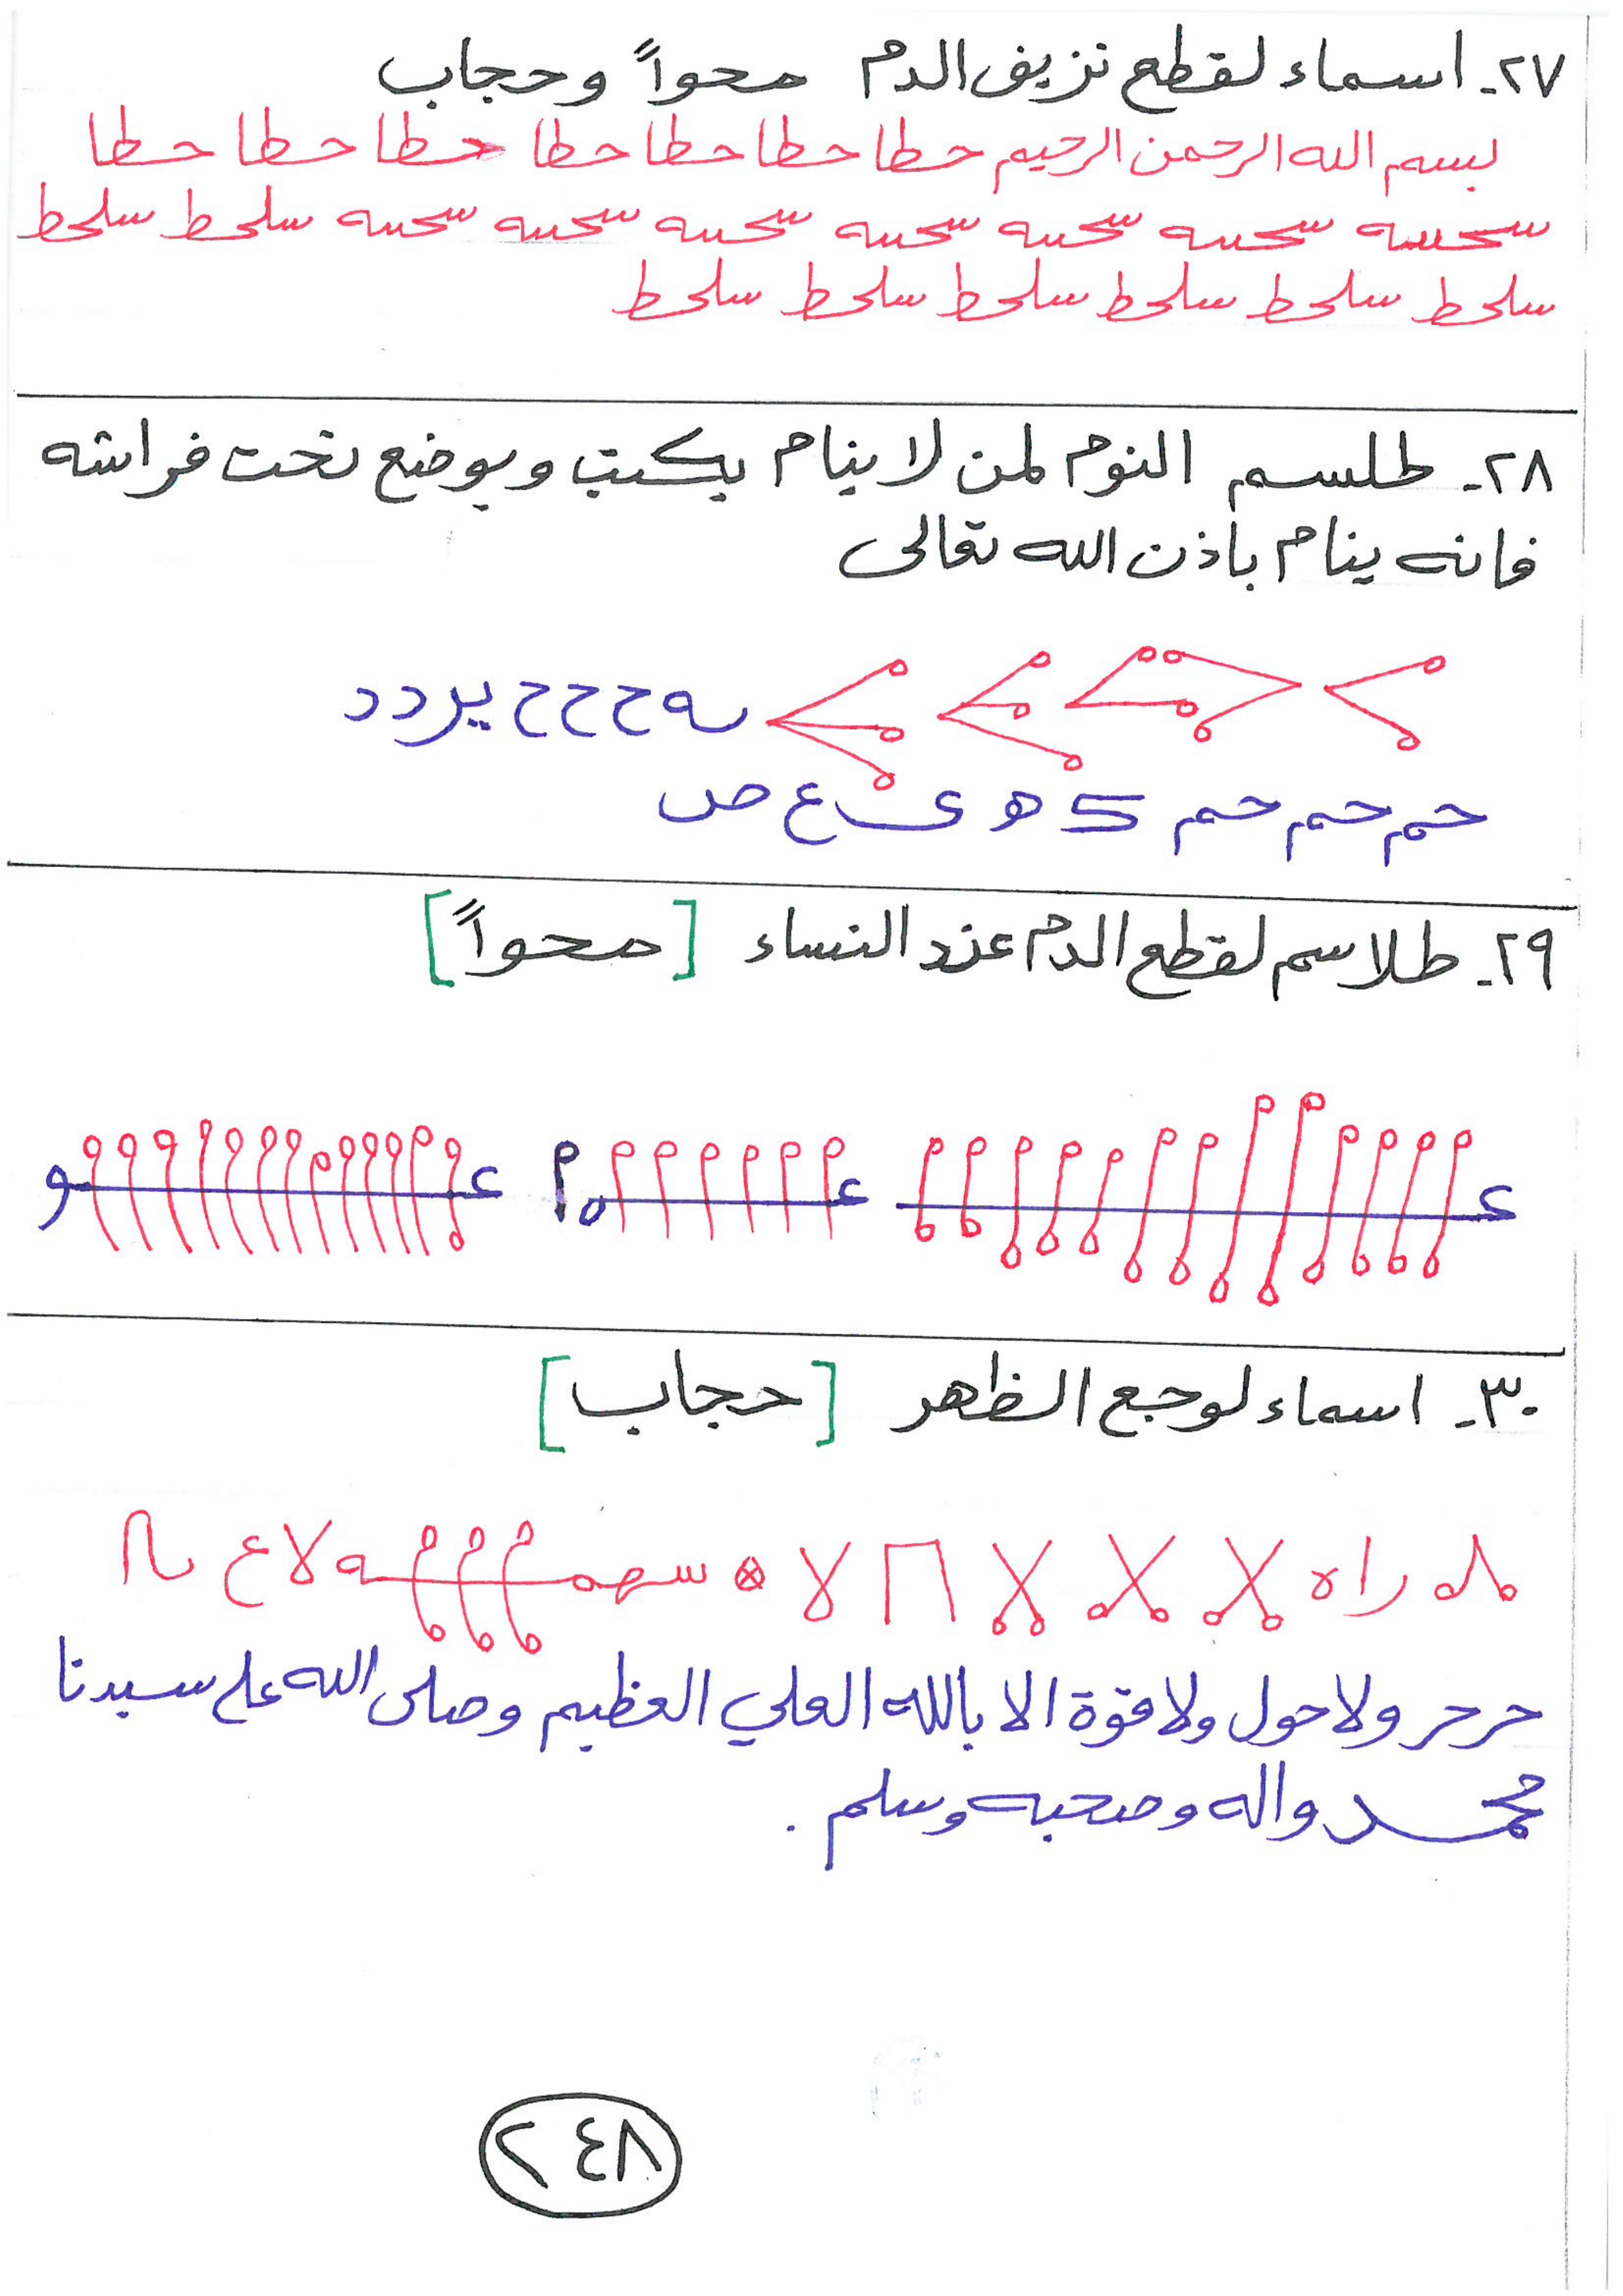 ٢٧ـ اسماء لقطع نزيف الدم محواً وحجاب
بسم الله الرحمن الرحيم حطا حطا حطا حطا حطا حطا حطا
سلحط سلحط
سلحط سلحط سلحط سلحط سلحط سلحط
٢٨ـ طلسم النوم لمن لا ينام يكتب ويوضع تحت فراشه
فانه ينام باذن الله تعالى
ح ح ح ير د د
حم حم حم ك ه ي ع ص
٢٩ـ طلاسم لقطع الدم عند النساء [محواً]
٣٠ـ اسماء لوجع الظهر [حجاب]
حرحر ولا حول ولا قوة الا بالله العلي العظيم وصلى الله على سيدنا
محمد واله وصحبه وسلم .
٢٤٨